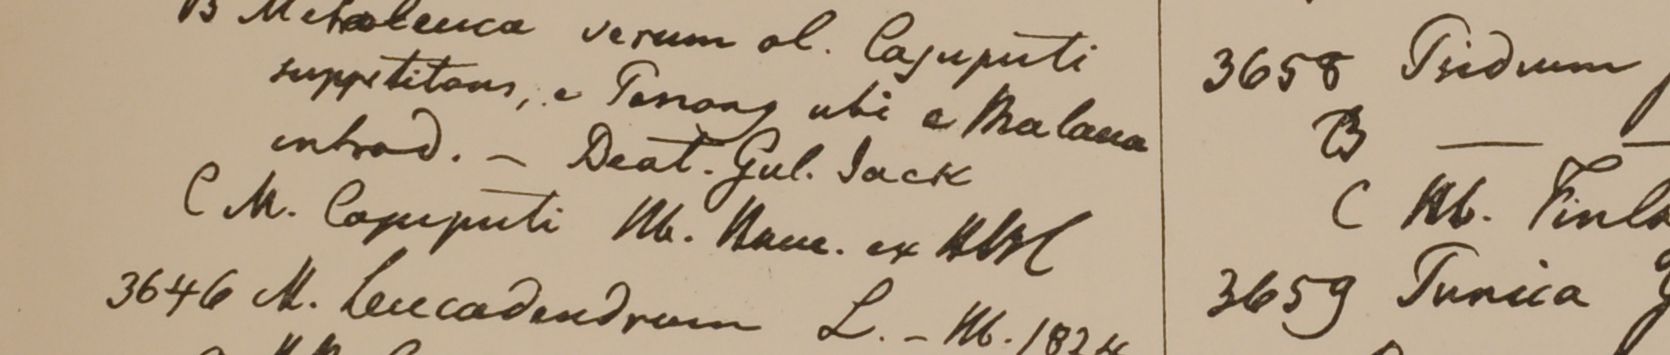 B Metaleuca verum ol. Cajuputi
suppetitans, e Penang ubi e Malacca
introd. — Deat. Gul. Jack
C M. Cajuputi Hb. Ham. ex HBC
3646 M. Leucadendrum L. — Hb. 1824
3658 Psidium
B — —
C Hb. Finls
3659 Punica G